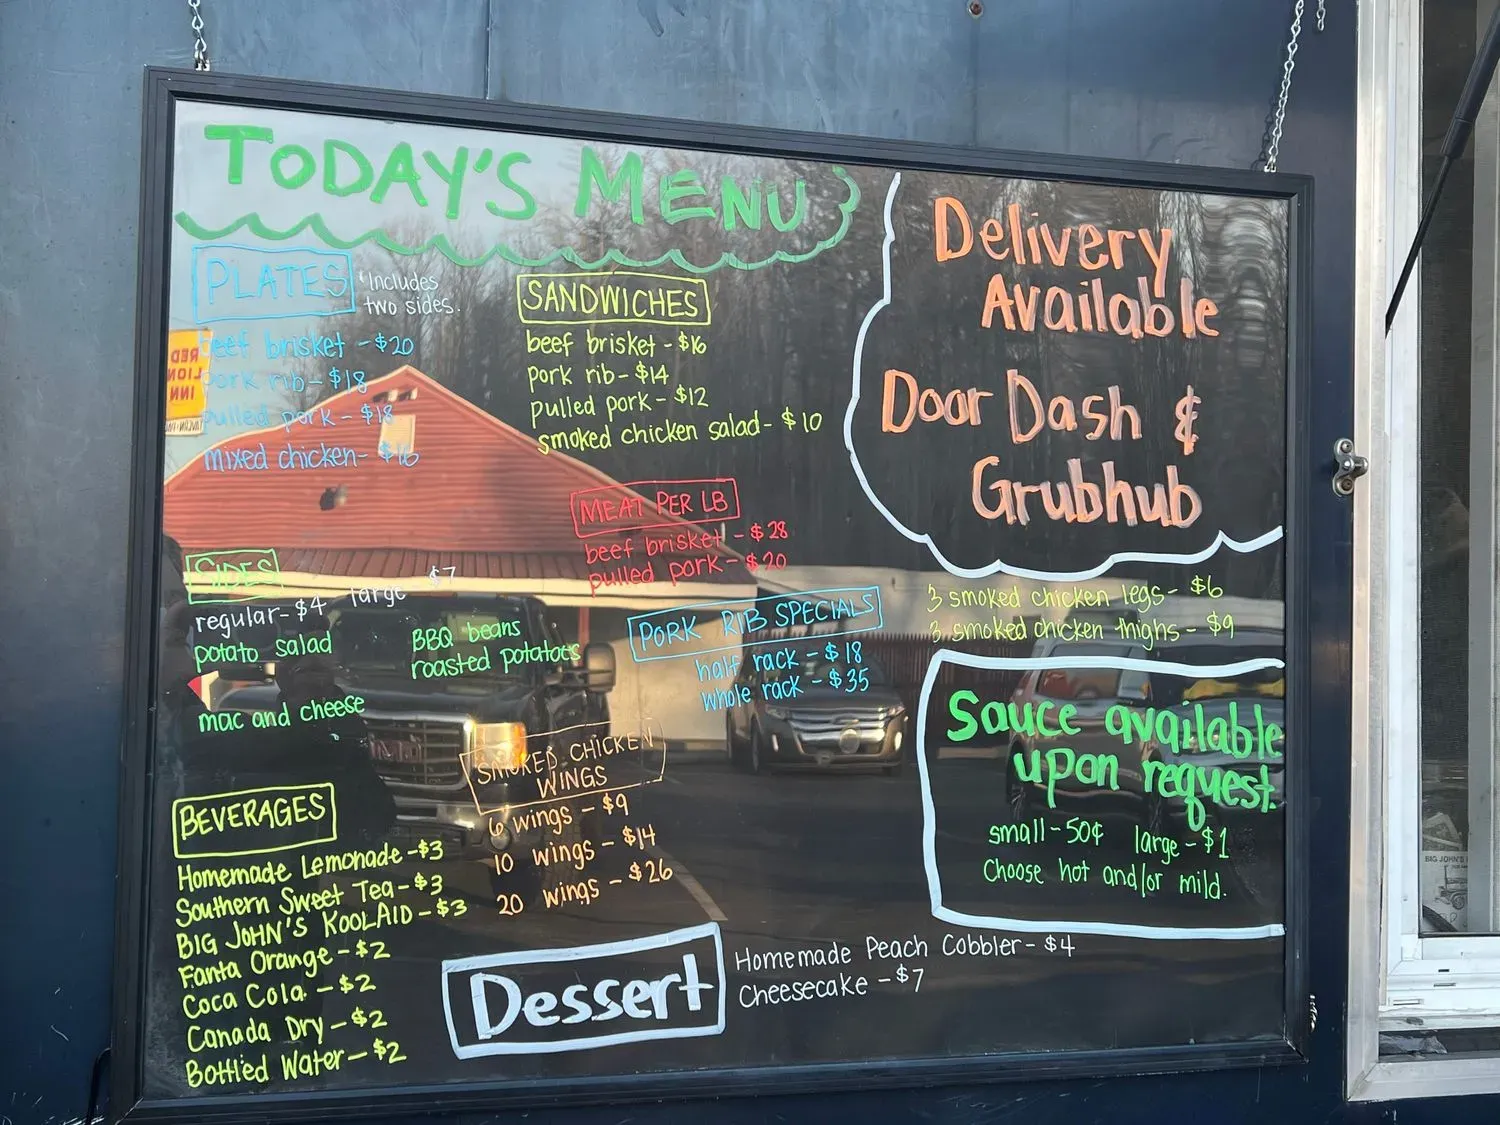 TODAY'S MENU
PLATES
*Includes
two sides.
beef brisket - $20
pork rib - $18
pulled pork - $18
mixed chicken - $16
SANDWICHES
beef brisket - $16
pork rib - $14
pulled pork - $12
smoked chicken salad - $10
MEAT PER LB
beef brisket - $28
pulled pork - $20
SIDES
regular - $4 large $7
potato salad
BBQ beans
roasted potatoes
mac and cheese
PORK RIB SPECIALS
half rack - $18
whole rack - $35
SMOKED CHICKEN
WINGS
6 wings - $9
10 wings - $14
20 wings - $26
BEVERAGES
Homemade Lemonade - $3
Southern Sweet Tea - $3
BIG JOHN'S KOOLAID - $3
Fanta Orange - $2
Coca Cola - $2
Canada Dry - $2
Bottled Water - $2
Dessert
Homemade Peach Cobbler - $4
Cheesecake - $7
Delivery
Available
Door Dash &
Grubhub
3 smoked chicken legs - $6
3 smoked chicken thighs - $9
Sauce available
upon request.
small - 50¢ large - $1
Choose hot and/or mild.
RED
LION
INN
BIG JOHN'S